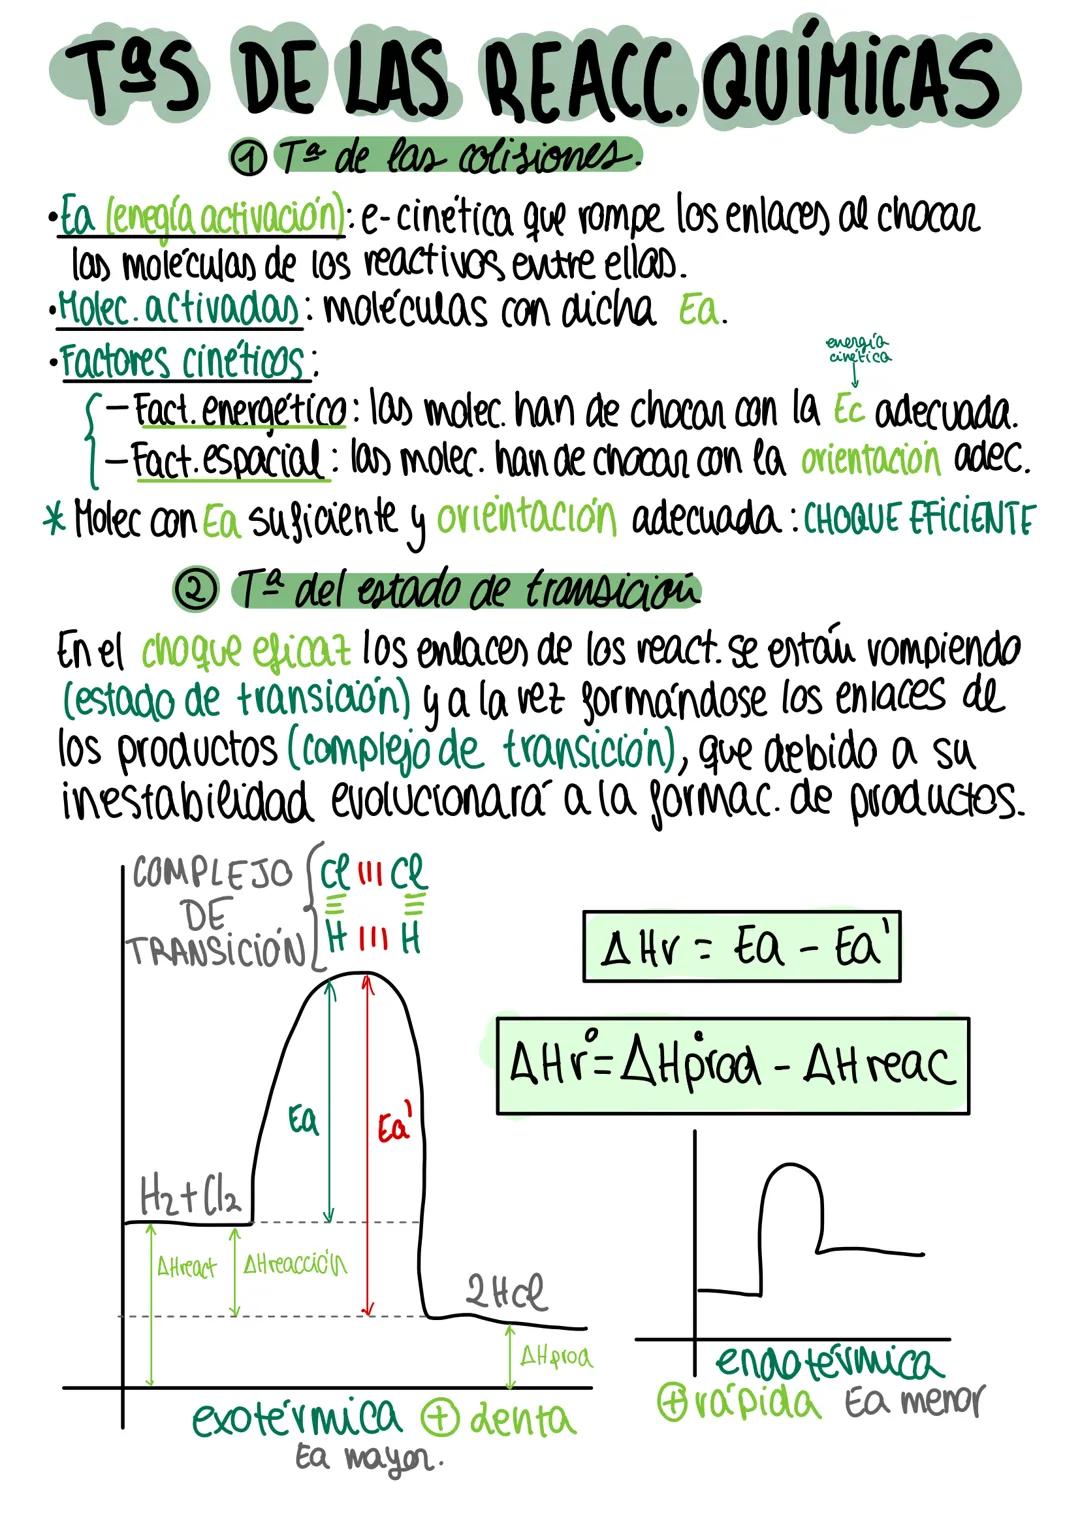 TªS DE LAS REACC. QUÍMICAS
① Tª de las colisiones.
·Ea (enegía activación): e- cinética que rompe los enlaces al chocar
las moléculas de los reactivos entre ellas.
·Molec. activadas: moléculas con dicha Ea.
·Factores cinéticos:
energía
cinética
- Fact. energético: las molec. han de chocar con la Ec adecuada.
- Fact. espacial: las molec. han de chocar con la orientación adec.
* Molec con Ea suficiente y orientación adecuada: CHOQUE EFICIENTE
② Tª del estado de transición
En el choque eficaz los enlaces de los react. se están rompiendo
(estado de transición) y a la vez formándose los enlaces de
los productos (complejo de transición), que debido a su
inestabilidad evolucionará a la formac. de productos.
COMPLEJO
DE
TRANSICIÓN
Cl ||| Cl
≡ ≡
H ||| H
ΔHr = Ea - Ea'
ΔHr° = ΔH°prod - ΔH°reac
Ea
Ea'
H₂+Cl₂
ΔHreact
ΔHreacción
2HCl
ΔHprod
exotérmica ⊕ denta
Ea mayor.
endotérmica
⊕ rápida Ea menor